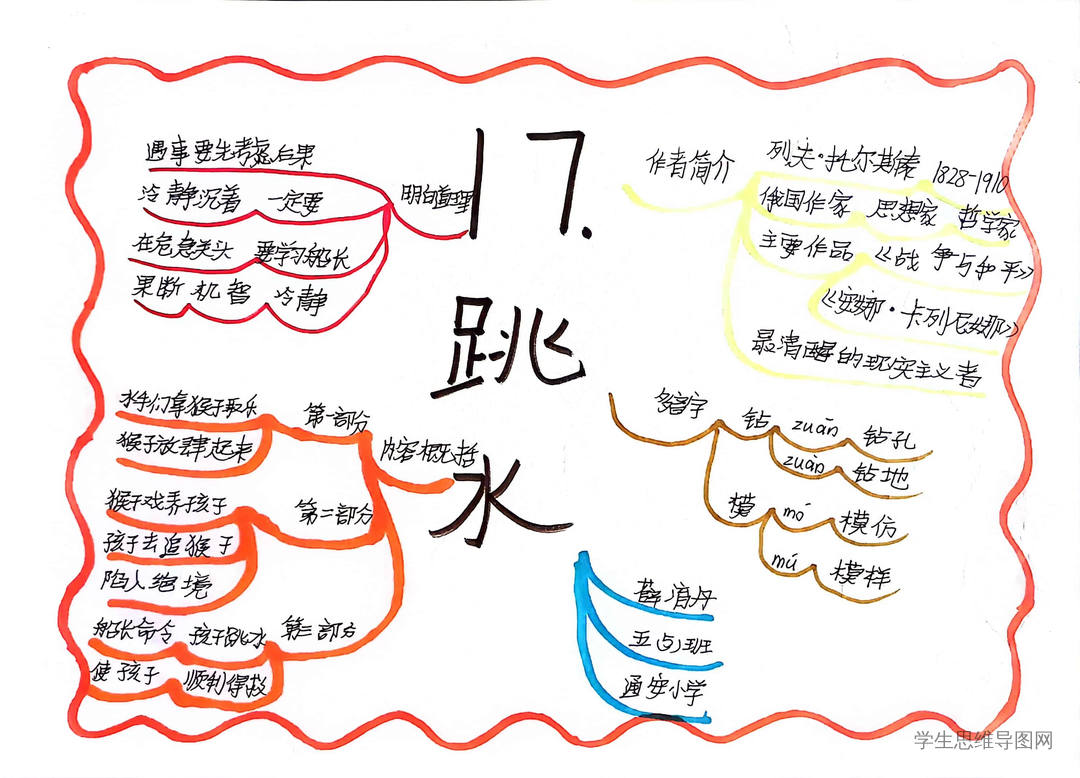 17.
跳
水
遇事要先考虑后果
冷静沉着 一定要
明白道理
在危急关头 要学习船长
果断 机智 冷静
作者简介
列夫·托尔斯泰 1828-1910
俄国作家 思想家 哲学家
主要作品 《战争与和平》
《安娜·卡列尼娜》
最清醒的现实主义者
内容概括
第一部分
水手们拿猴子取乐
猴子放肆起来
第二部分
猴子戏弄孩子
孩子去追猴子
陷入绝境
第三部分
船长命令 孩子跳水
使孩子 顺利得救
多音字
钻 zuān 钻孔
zuān 钻地
模 mó 模仿
mú 模样
薛 丹
五(5)班
通安小学
学生思维导图网